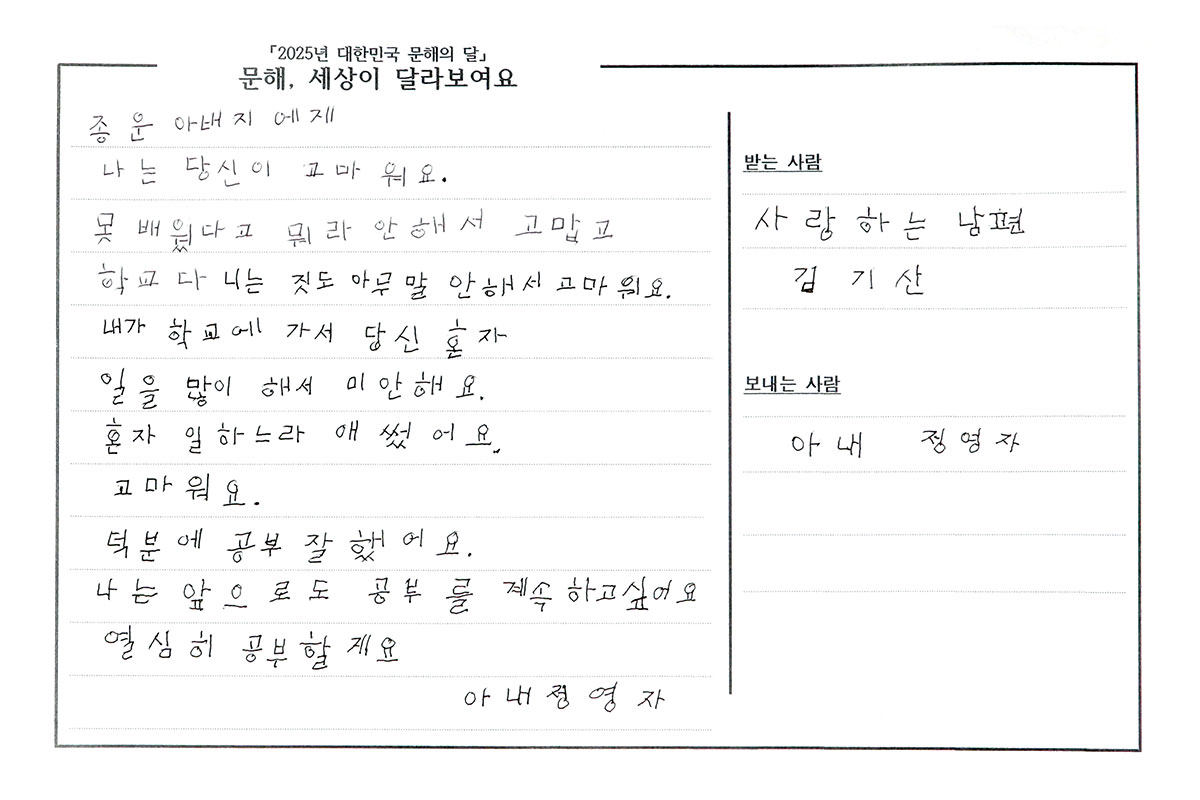 『2025년 대한민국 문해의 달』
문해, 세상이 달라보여요
종운 아버지 에게
나는 당신이 고마 워요.
못 배웠다고 뭐라 안해서 고맙고
학교 다 니는 것도 아무말 안해서 고마워요.
내가 학교에 가서 당신 혼자
일을 많이 해서 미안해요.
혼자 일하느라 애 썼어요.
고마워요.
덕분에 공부 잘 했어요.
나는 앞으로도 공부를 계속 하고싶어요
열심히 공부할게요
아내정영자
받는 사람
사랑하는 남편
김기산
보내는 사람
아내 정영자